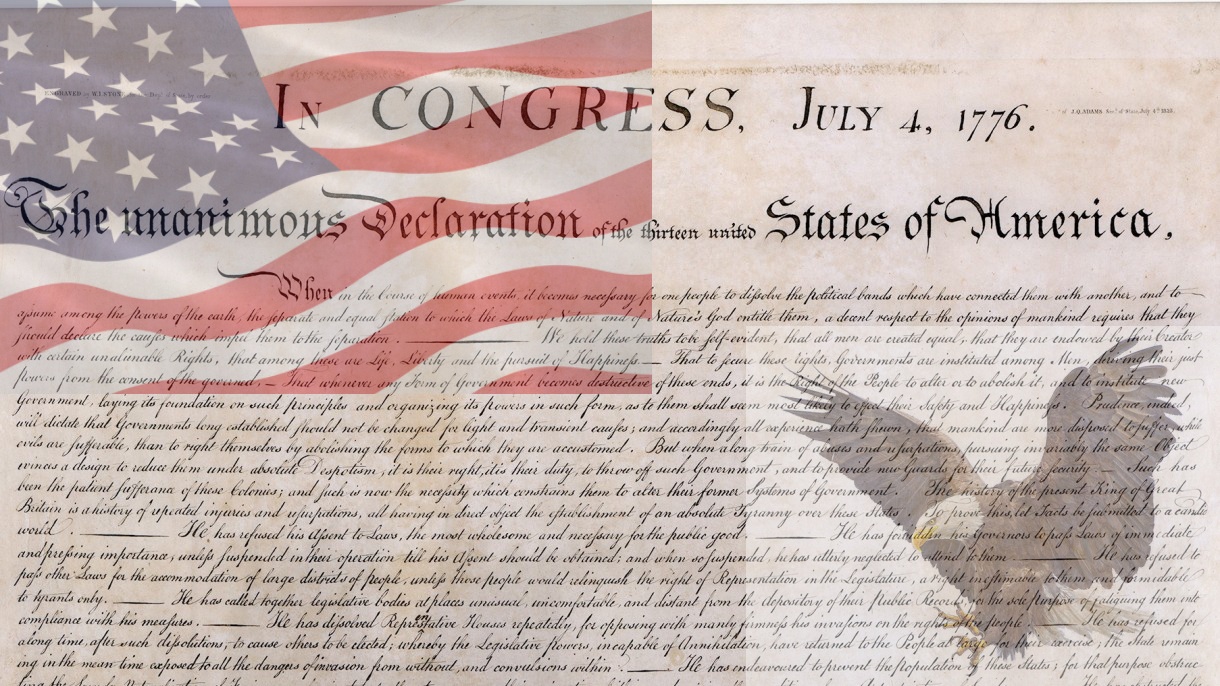 ENGRAVED by W.I.STONE
In CONGRESS, July 4, 1776.
J.Q.ADAMS Sec.y of State, July 4th
The unanimous Declaration of the thirteen united States of America,
When in the Course of human events, it becomes necessary for one people to dissolve the political bands which have connected them with another, and to
assume among the powers of the earth, the separate and equal station to which the Laws of Nature and of Nature's God entitle them, a decent respect to the opinions of mankind requires that they
should declare the causes which impel them to the separation. We hold these truths to be self-evident, that all men are created equal, that they are endowed by their Creator
with certain unalienable Rights, that among these are Life, Liberty and the pursuit of Happiness.— That to secure these rights, Governments are instituted among Men, deriving their just
powers from the consent of the governed,— That whenever any Form of Government becomes destructive of these ends, it is the Right of the People to alter or to abolish it, and to institute new
Government, laying its foundation on such principles and organizing its powers in such form, as to them shall seem most likely to effect their Safety and Happiness. Prudence, indeed,
will dictate that Governments long established should not be changed for light and transient causes; and accordingly all experience hath shewn, that mankind are more disposed to suffer, while
evils are sufferable, than to right themselves by abolishing the forms to which they are accustomed. But when a long train of abuses and usurpations, pursuing invariably the same Object
evinces a design to reduce them under absolute Despotism, it is their right, it is their duty, to throw off such Government, and to provide new Guards for their future security.— Such has
been the patient sufferance of these Colonies; and such is now the necessity which constrains them to alter their former Systems of Government. The history of the present King of Great
Britain is a history of repeated injuries and usurpations, all having in direct object the establishment of an absolute Tyranny over these States. To prove this, let Facts be submitted to a candid
world. He has refused his Assent to Laws, the most wholesome and necessary for the public good. He has forbidden his Governors to pass Laws of immediate
and pressing importance, unless suspended in their operation till his Assent should be obtained; and when so suspended, he has utterly neglected to attend to them. He has refused to
pass other Laws for the accommodation of large districts of people, unless those people would relinquish the right of Representation in the Legislature, a right inestimable to them and formidable
to tyrants only. He has called together legislative bodies at places unusual, uncomfortable, and distant from the depository of their Public Records, for the sole purpose of fatiguing them into
compliance with his measures. He has dissolved Representative Houses repeatedly, for opposing with manly firmness his invasions on the rights of the people. He has refused for
a long time, after such dissolutions, to cause others to be elected; whereby the Legislative powers, incapable of Annihilation, have returned to the People at large for their exercise; the State remain
ing in the mean time exposed to all the dangers of invasion from without, and convulsions within. He has endeavoured to prevent the population of these States; for that purpose obstruc